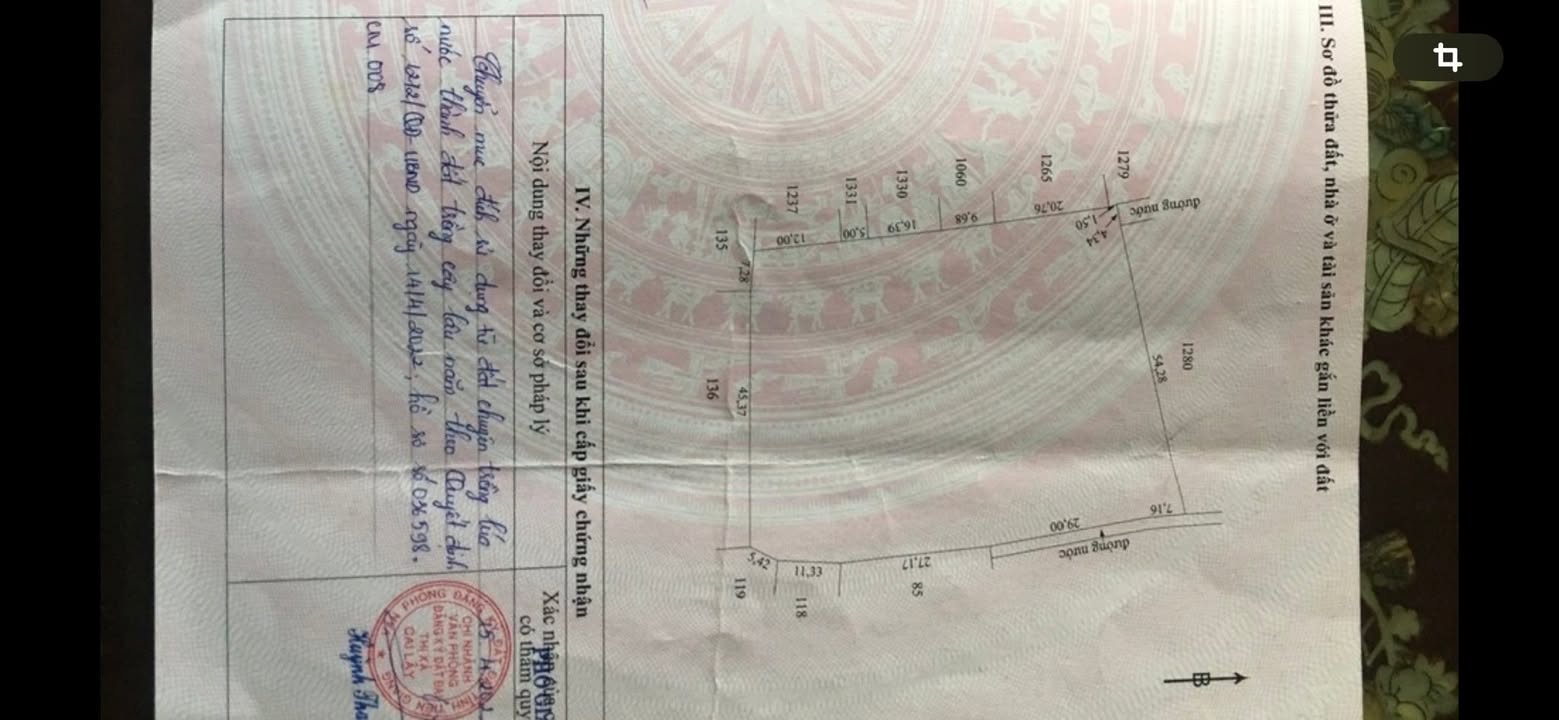 III. Sơ đồ thửa đất, nhà ở và tài sản khác gắn liền với đất
B
1279
đường nước
1,50
4,34
1265
20,76
1280
54,28
7,16
1060
9,68
29,00
đường nước
1330
16,39
1331
5,00
27,17
85
1237
12,00
11,33
118
135
7,28
136
45,37
5,42
119
IV. Những thay đổi sau khi cấp giấy chứng nhận
Nội dung thay đổi và cơ sở pháp lý
Xác nhận
có thẩm quy
Chuyển mục đích sử dụng từ đất chuyên trồng lúa
nước thành đất trồng cây lâu năm theo Quyết định
số 1212/QĐ-UBND ngày 14/4/2022, hồ sơ số 036598.
CM 008
CHI NHÁNH
VĂN PHÒNG
ĐĂNG KÝ ĐẤT ĐAI
THỊ XÃ
CAI LẬY
Huỳnh Tha